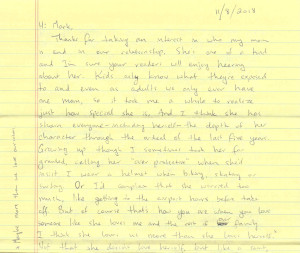 11/8/2018
Hi Mark,
Thanks for taking an interest in who my mom
is and in our relationship. She's one of a kind
and I'm sure your readers will enjoy hearing
about her. Kids only know what they're exposed
to and even as adults we only ever have
one mom, so it took me a while to realize
just how special she is. And I think she has
shown everyone including herself the depth of her
character through the ordeal of the last five years.
Growing up though I sometimes took her for
granted calling her "over protective" when she'd
insist I wear a helmet when biking, skating or
Or I'd complain that she worried too
much, like getting to the airport hours before take
off. But of course that's how you are when you love
someone like she loves me and the rest of family.
I think she loves us more than she loves herself.*
Not that she doesn't love herself, but like a
* Maybe more than we love ourselves.